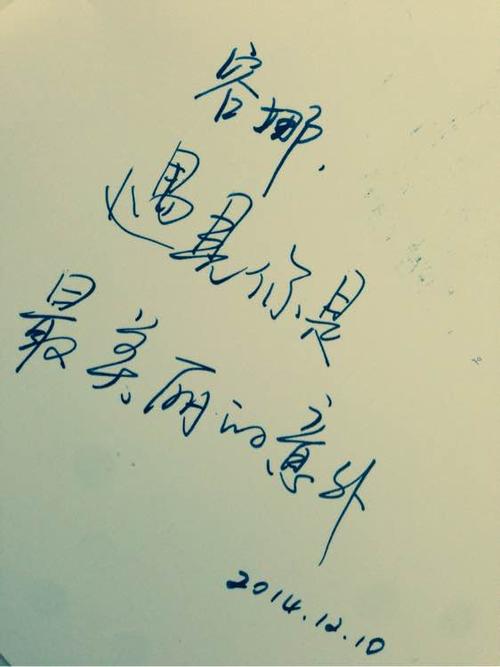 容挪.
遇见你是
最美丽的意外
2014.12.10